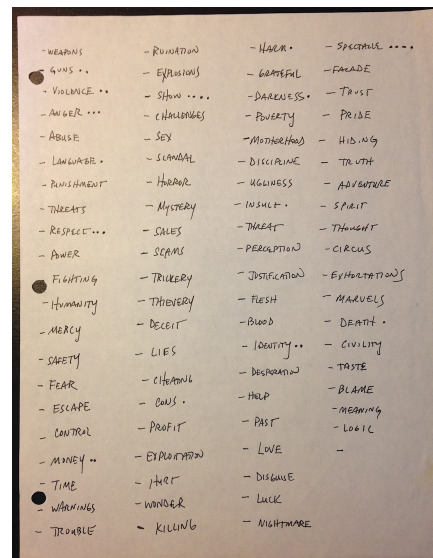 - WEAPONS
- GUNS ..
- VIOLENCE ..
- ANGER ...
- ABUSE
- LANGUAGE .
- PUNISHMENT
- THREATS
- RESPECT ...
- POWER
- FIGHTING
- HUMANITY
- MERCY
- SAFETY
- FEAR
- ESCAPE
- CONTROL
- MONEY ..
- TIME
- WARNINGS
- TROUBLE
- RUINATION
- EXPLOSIONS
- SHOW ....
- CHALLENGES
- SEX
- SCANDAL
- HORROR
- MYSTERY
- SALES
- SCAMS
- TRICKERY
- THIEVERY
- DECEIT
- LIES
- CHEATING
- CONS .
- PROFIT
- EXPLOITATION
- HURT
- WONDER
- KILLING
- HARM .
- GRATEFUL
- DARKNESS .
- POVERTY
- MOTHERHOOD
- DISCIPLINE
- UGLINESS
- INSULT .
- THREAT
- PERCEPTION
- JUSTIFICATION
- FLESH
- BLOOD
- IDENTITY ..
- DESPERATION
- HELP
- PAST
- LOVE
- DISGUISE
- LUCK
- NIGHTMARE
- SPECTACLE ....
- FACADE
- TRUST
- PRIDE
- HIDING
- TRUTH
- ADVENTURE
- SPIRIT
- THOUGHT
- CIRCUS
- EXHORTATIONS
- MARVELS
- DEATH .
- CIVILITY
- TASTE
- BLAME
- MEANING
- LOGIC
-